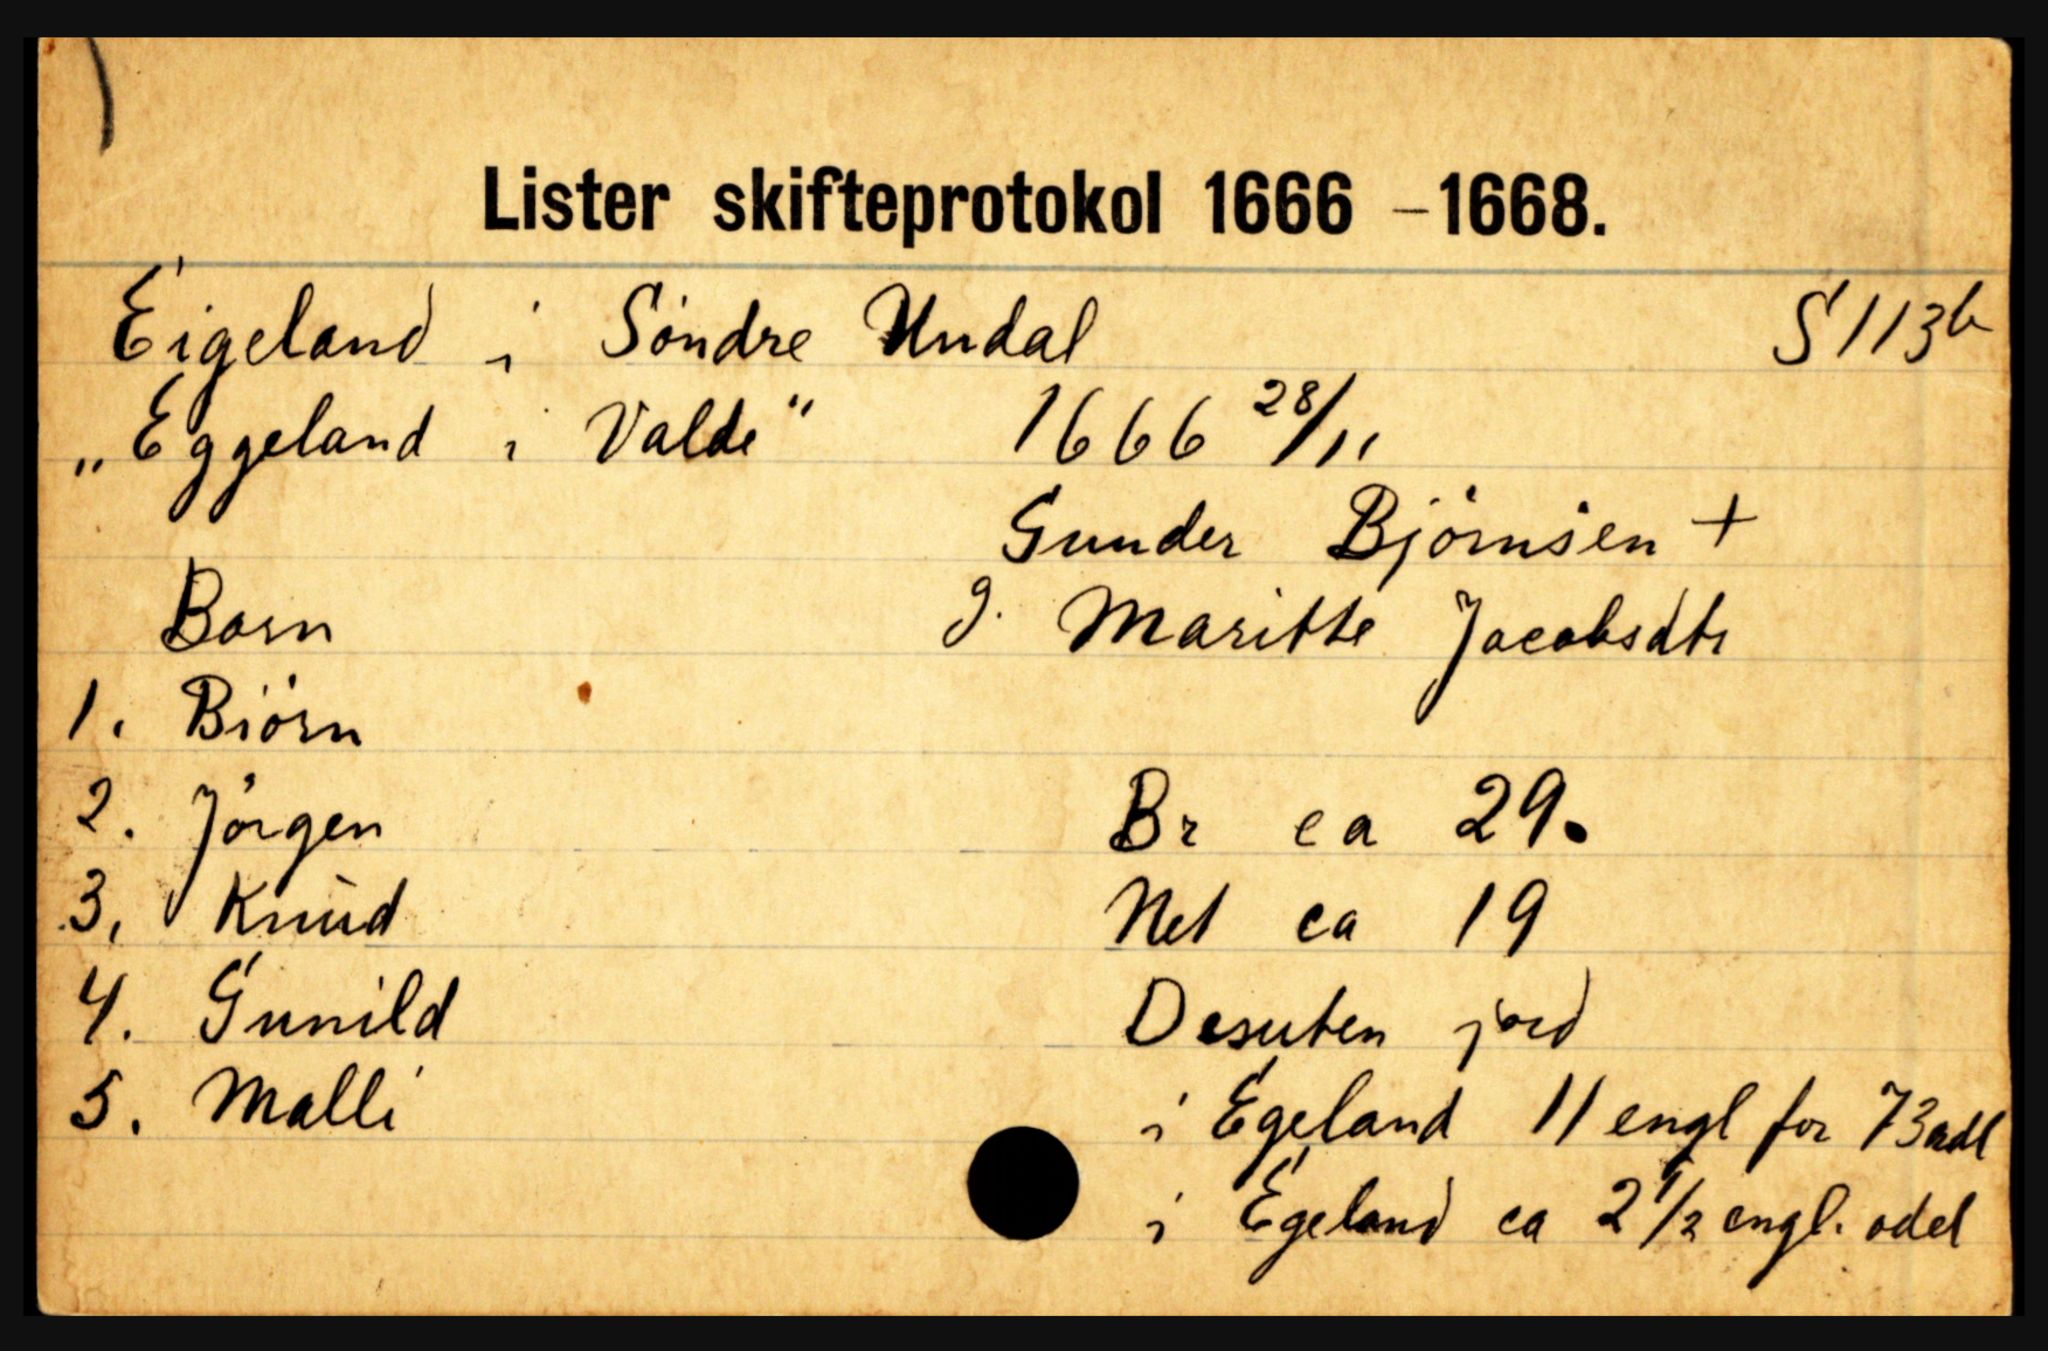 Lister skifteprotokol 1666 – 1668.
Eigeland i Söndre Undal S 113b
„Eggeland i Valde" 1666 28/11
Gunder Björnsen +
Barn g. Maritte Jacobsdtr
1. Biörn
2. Jörgen Br ca 29.
3. Knŭd Net ca 19
4. Gunild Desuten jord
5. Malli i Egeland 11 engl for 73 rdl
i Egeland ca 2 1/2 engl. odel